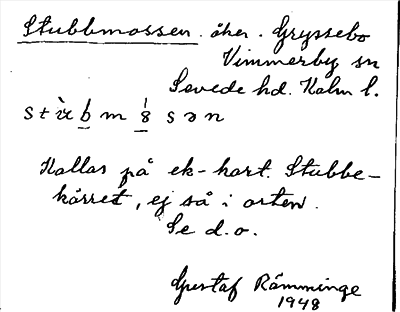 Stubbmossen. åker. Gryssebo
Vimmerby sn
Sevede hd. Kalm l.
Kallas på ek-kart. Stubbe-
kärret, ej så i orten.
Se d.o.
Gustaf Rämminge
1948